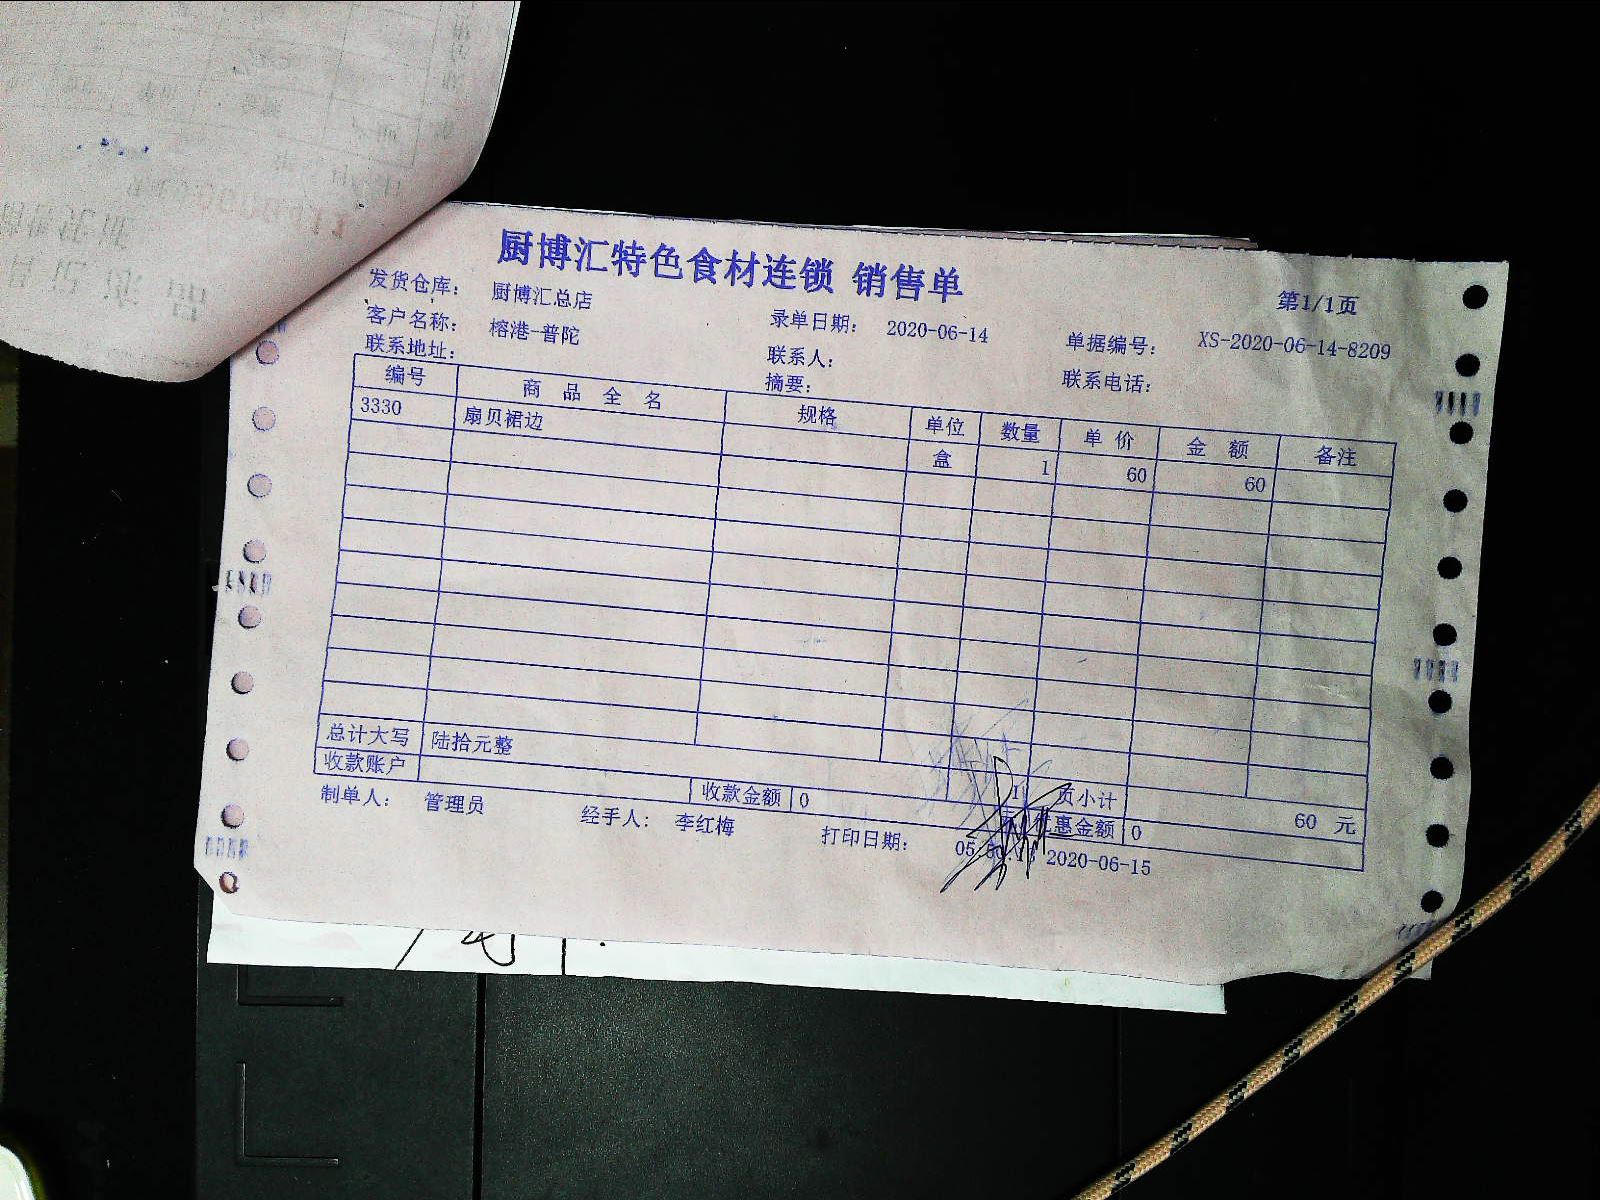 厨博汇特色食材连锁 销售单
第1/1页
发货仓库： 厨博汇总店 录单日期： 2020-06-14 单据编号： XS-2020-06-14-8209
客户名称： 榕港-普陀 联系人： 联系电话：
联系地址： 摘要：
编号 商品全名 规格 单位 数量 单价 金额 备注
3330 扇贝裙边 盒 1 60 60
总计大写 陆拾元整 页小计 60 元
收款账户 收款金额 0 优惠金额 0
制单人： 管理员 经手人： 李红梅 打印日期： 2020-06-15